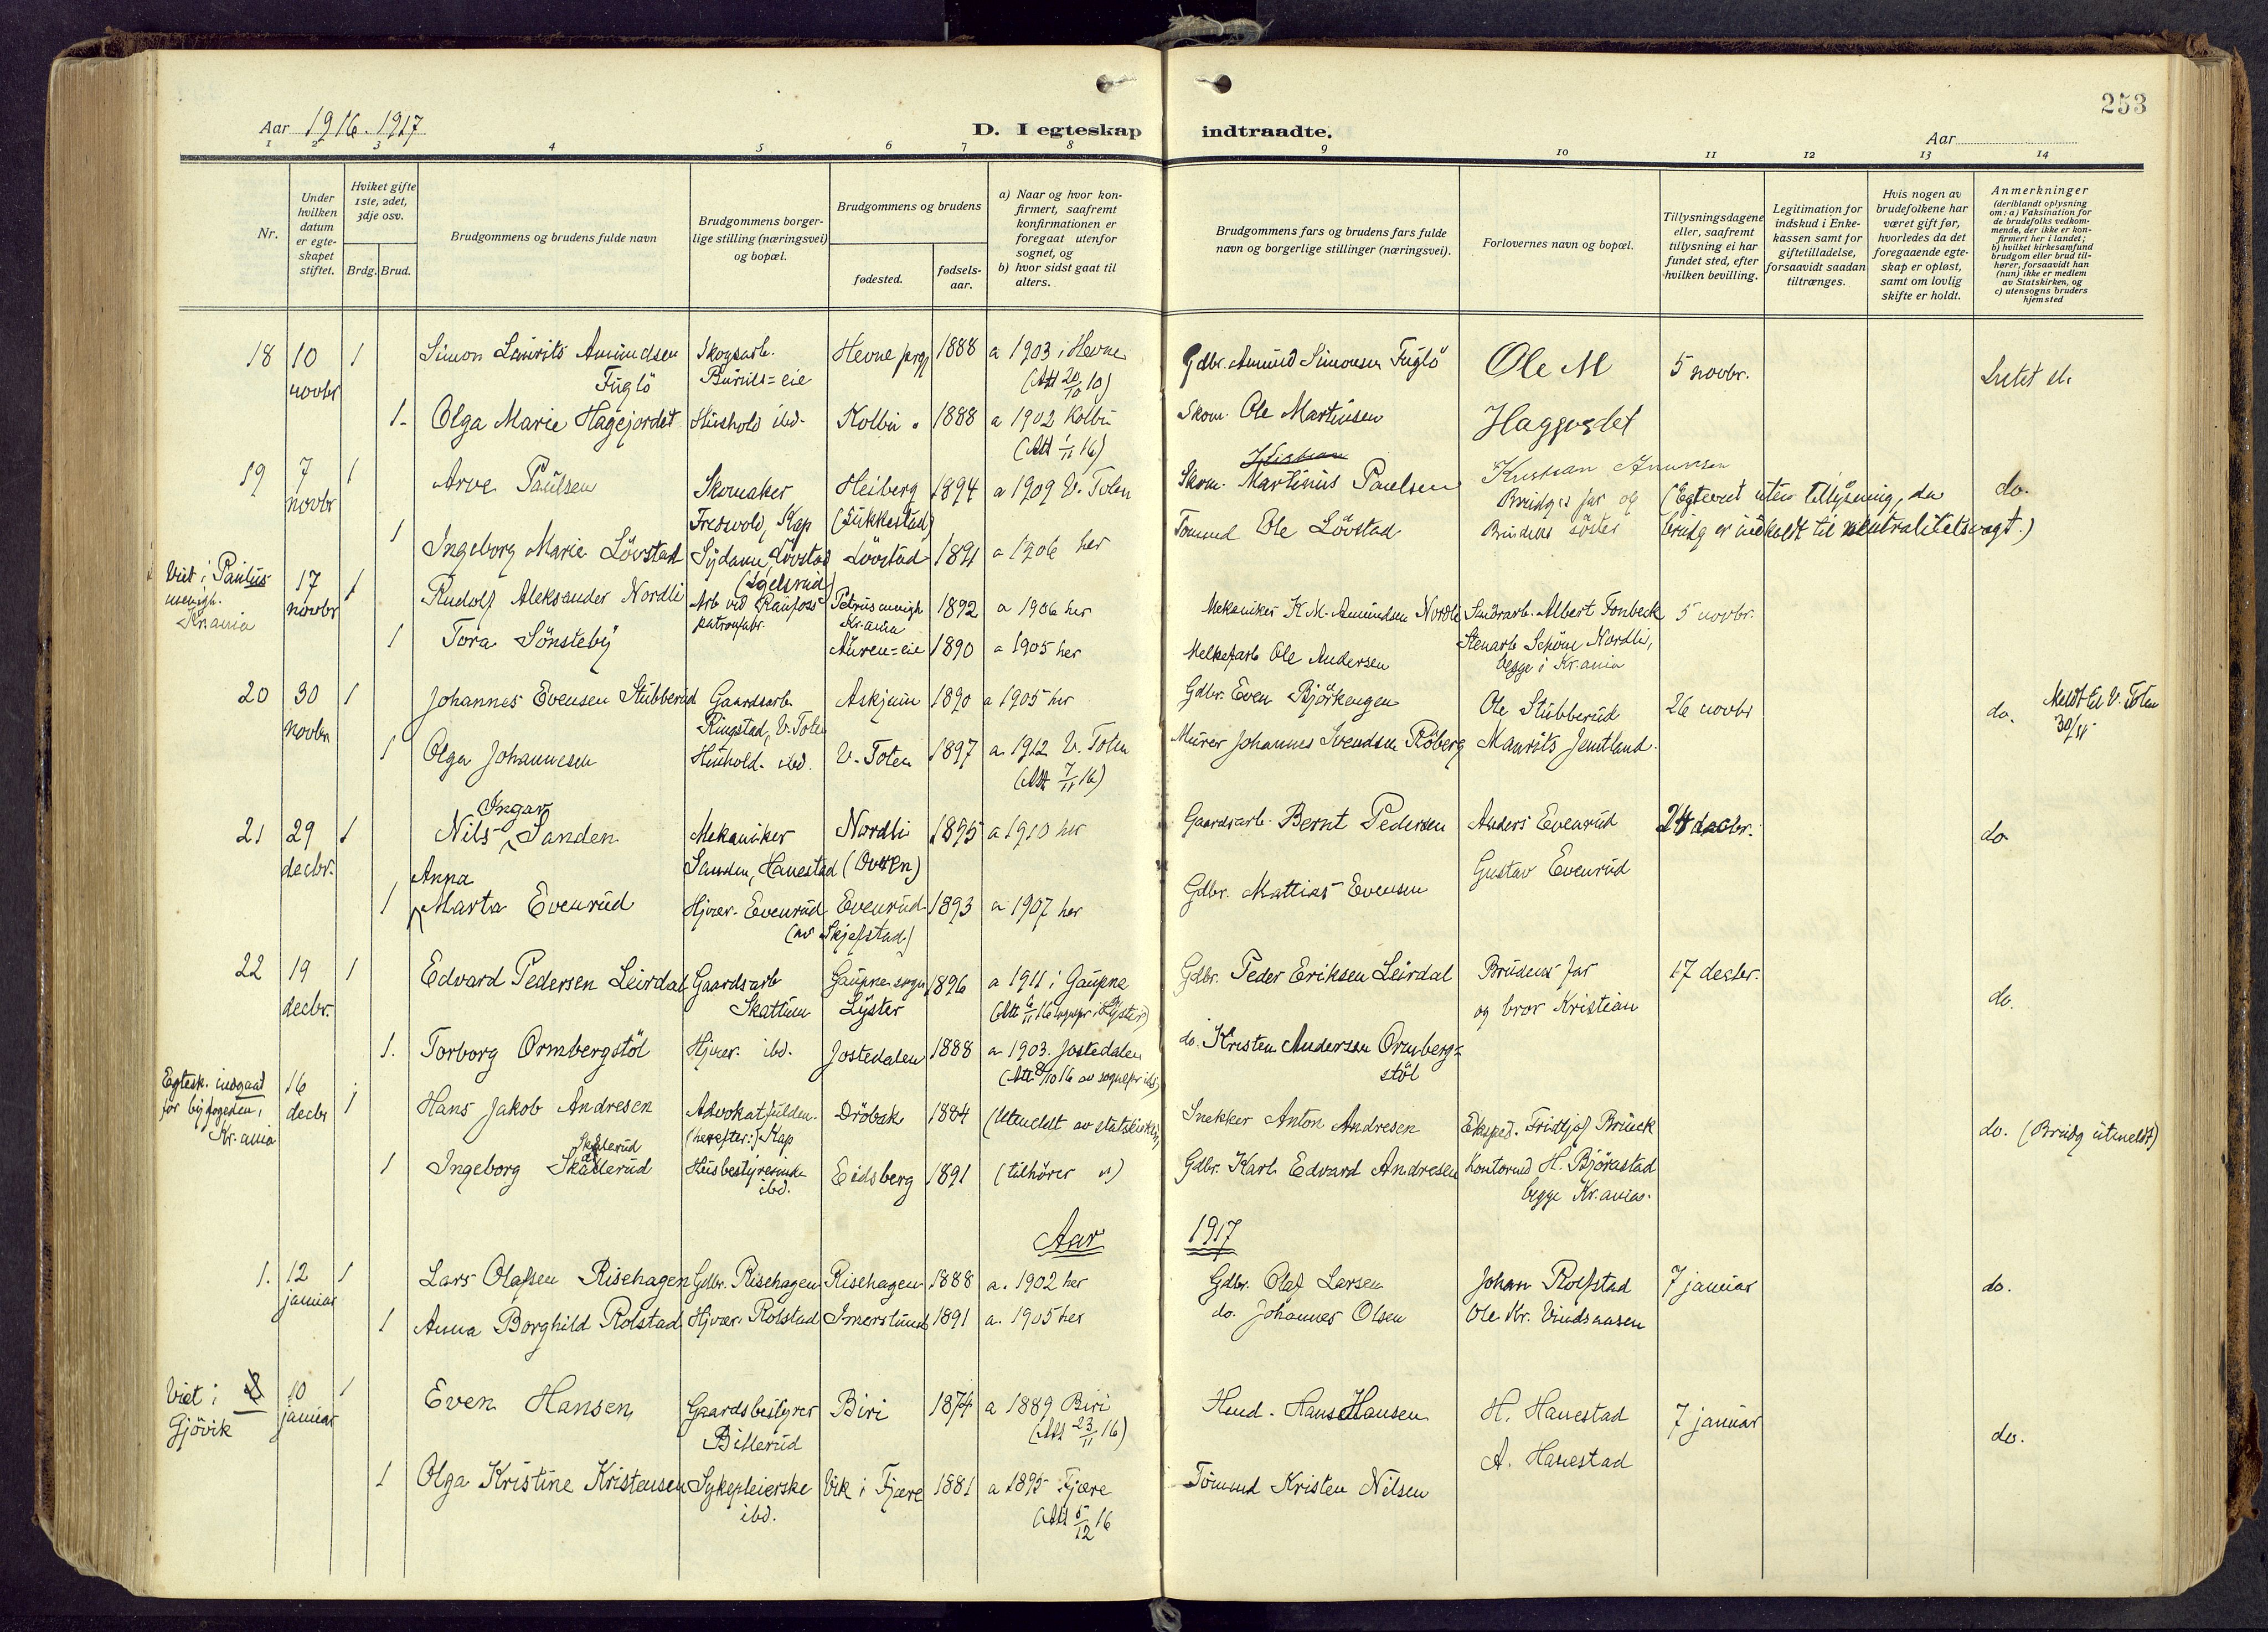 253
Aar 1916-1917
D. I egteskap indtraadte.
Aar
1 2 3 4 5 6 7 8 9 10 11 12 13 14
Nr.
Under hvilken datum er egteskapet stiftet.
Hviket gifte 1ste, 2det, 3dje osv.
Brdg. Brud.
Brudgommens og brudens fulde navn
Brudgommens borgerlige stilling (næringsvei) og bopæl.
Brudgommens og brudens
fødested.
fødselsaar.
a) Naar og hvor konfirmert, saafremt konfirmationen er foregaat utenfor sognet, og
b) hvor sidst gaat til alters.
Brudgommens fars og brudens fars fulde navn og borgerlige stillinger (næringsvei).
Forlovernes navn og bopæl.
Tillysningsdagene eller, saafremt tillysning ei har fundet sted, efter hvilken bevilling.
Legitimation for indskud i Enkekassen samt for giftetilladelse, forsaavidt saadan tiltrænges.
Hvis nogen av brudefolkene har været gift før, hvorledes da det foregaaende egteskap er opløst, samt om lovlig skifte er holdt.
Anmerkninger (deriblandt oplysning om: a) Vaksination for de brudefolks vedkommende, der ikke er konfirmert her i landet; b) hvilket kirkesamfund brudgom eller brud tilhører, forsaavidt han (hun) ikke er medlem av Statskirken, og c) utensogns bruders hjemsted
18 10 novbr 1 Simon Laurits Amundsen Fuglö Skogsarb. Hevne prgj 1888 a 1903 i Hevne (Att 20/10 10) Gdbr. Amund Simonsen Fuglö Ole M 5 novbr.
1. Olga Marie Hagejordet Hushold ibd. Kolbu 1888 a 1902 Kolbu (Att 1/11 16) Skom. Ole Martinsen Haggordet
19 7 novbr 1 Arve Paulsen Skomaker Heiberg (Lukkestad) 1894 a 1909 V. Toten Skom. Martinus Paulsen Kristian Brudg.s far og (Egteviet uten tillysning, da do.
1 Ingeborg Marie Lövstad Sydame, Lövstad Lövstad 1891 a 1906 her Tömmd Ole Lövstad Brudens söster brudg er indkaldt til neutralitetsvagt.)
Viet i Paulus menigh. Kr.ania 17 novbr 1 Rudolf Aleksander Nordli Arb ved Raufoss patronfabr. Petrus menigh Kr.ania 1892 a 1906 her Mekaniker K. M. Amundsen Nordli Albert Tonbeck 5 novbr.
1 Tora Sönsteby Auren=eie 1890 a 1905 her Melkefarb Ole Andersen Stenarb Nordli, begge i Kr.ania
20 30 novbr 1 Johannes Evensen Stubberud Gaardsarb. Ringstad, V. Toten Askjum 1890 a 1905 her Gdbr. Even Björkengen Ole Stubberud 26 novbr do. Meldt til V. Toten 30/11
1 Olga Johannesen Hushold. ibd. V. Toten 1897 a. 1912 V. Toten (Att 7/11 16) Murer Johannes Svendsen Röberg Maurits Jemtland.
21 29 decbr. 1 Nils Ingar Sanden Mekaniker Sanden, Hanestad Nordli 1895 a 1910 her Gaardsarb. Bernt Pedersen Anders Evenrud decbr. do
1 Anna Marta Evenrud Hjvær. Evenrud Evenrud (av Skjefstad) 1893 a 1907 her Gdbr. Mattias Evensen Gustav Evenrud
22 19 decbr. 1 Edvard Pedersen Leirdal Gaardsarb Skattum Gaupne sogn Lyster 1896 a 1911 i Gaupne (Att 6/11 16 sognepr i Lyster) Gdbr. Peder Eriksen Leirdal Brudens far og bror Kristian 17 decbr. do.
1. Torborg Ormbergstöl Hjvær. ibd. Jostedalen 1888 a 1903. Jostedalen (Att. 8/10 16 av sognepr ibd) do. Kristen Andersen Ormbergstöl
Egtesk. indgaat for byfogeden i Kr.ania 16 decbr 1 Hans Jakob Andresen Advokatfuldm. (herefter:) Kap Dröbak 1884 (Utmeldt av statskirken, Snekker Anton Andresen Eksped. Fridtjof Brueck do. (Brudg utmeldt)
1 Ingeborg Skallerud Husbestyrerinde ibd. Eidsberg 1891 (tilhörer ") Gdbr. Karl Edvard Andresen Kontormd H. Björnstad begge Kr.ania.
Aar 1917
1. 12 januar 1 Lars Olafsen Risehagen Gdbr. Risehagen Risehagen 1888 a. 1902 her Gdbr. Olaf Larsen Johan Rolfstad 7 januar do.
1 Anna Borghild Rolstad Hjvær. Rolstad Imerslund 1891 a. 1905 her do. Johannes Olsen Ole Kr. Vindsausen
Viet i Gjövik 10 januar 1 Even Hansen Gaardsbestyrer Billerud Biri 1874 a 1889 Biri (Att 23/11 16) Hmd. Hans Hansen H. Hanestad 7 januar do.
1 Olga Kristine Kristensen Sykepleierske ibd. Vik i Fjære 1881 a 1895 Fjære (Att 5/12 16 Tömmd Kristen Nilsen A. Hanestad